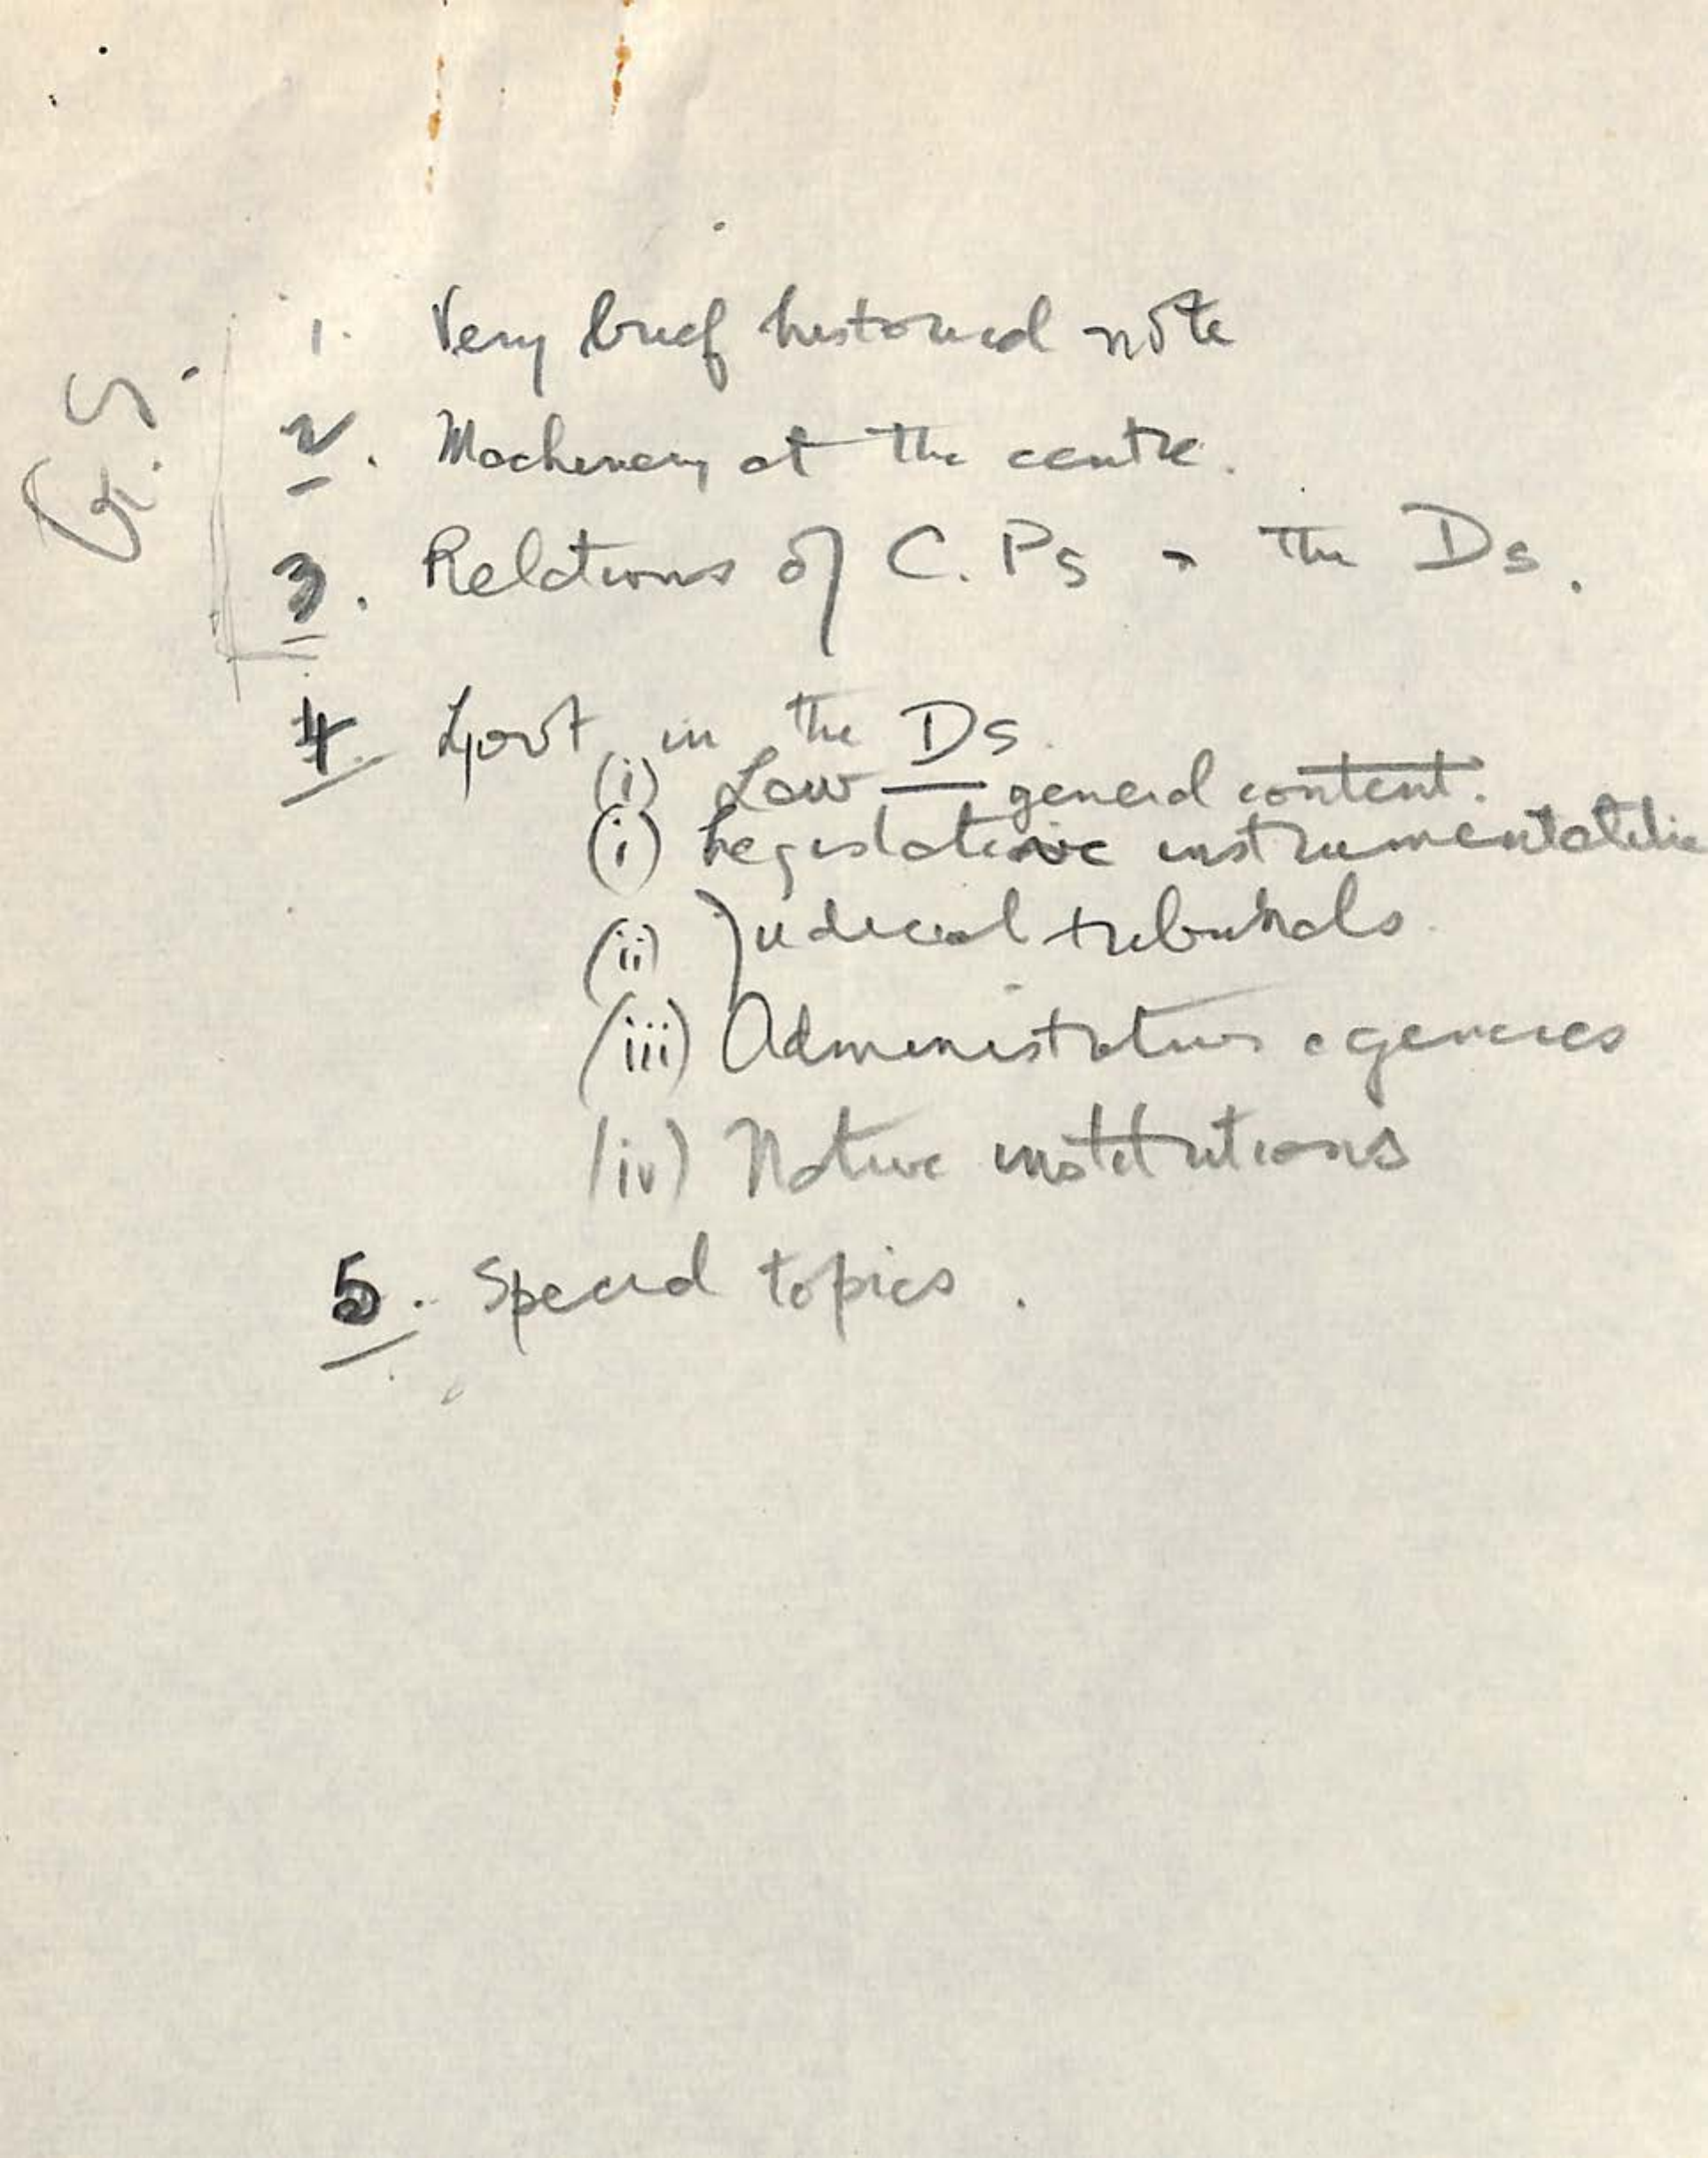 G.S.
1. Very brief historical note
2. Machinery at the centre.
3. Relations of C.Ps & the Ds.
4 Govt in the Ds.
(i) Law — general content.
(i) Legislative
(ii) Judicial tribunals.
(iii) Administrative agencies
(iv) Native institutions
5. Special topics.